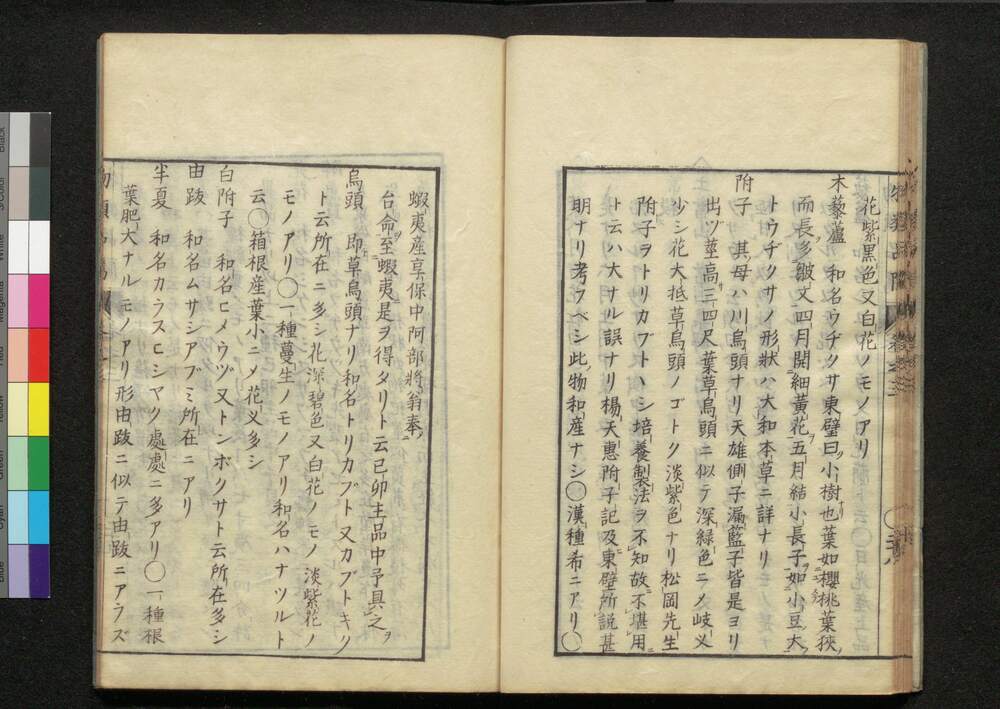 花紫黒色又白花ノモノアリ
木藜蘆 和名ウヂクサ東壁曰小樹也葉如櫻桃葉狹
而長多皺文四月開細黄花五月結小長子如小豆大
トウヂクサノ形狀ハ大和本草ニ詳ナリ
附子 其母ハ川烏頭ナリ天雄側子漏藍子皆是ヨリ
出ヅ莖高三四尺葉草烏頭ニ似テ深緑色ニメ岐义
少シ花大抵草烏頭ノゴトク淡紫色ナリ松岡先生
附子ヲトリカブトヽシ培養製法ヲ不知故不堪用
ト云ハ大ナル誤ナリ楊天惠附子記及東壁所說甚
明ナリ考フベシ此物和産ナシ〇漢種希ニアリ〇
蝦夷産享保中阿部將翁奉
台命至蝦夷是ヲ得タリト云己卯主品中予具之
烏頭 即草烏頭ナリ和名トリカブト又カブトキク
ト云所在ニ多シ花深碧色又白花ノモノ淡紫花ノ
モノアリ〇一種蔓生ノモノアリ和名ハナツルト
云〇箱根産葉小ニメ花义多シ
白附子 和名ヒメウヅ又トンボクサト云所在多シ
由跋 和名ムサシアブミ所在ニアリ
半夏 和名カラスヒシヤク處處ニ多アリ〇一種根
葉肥大ナルモノアリ形由跋ニ似テ由跋ニアラズ